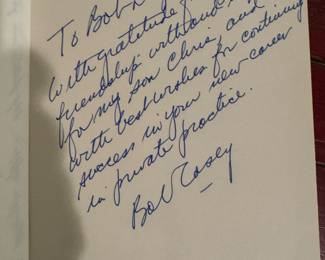 To Bob
With gratitude
friendship with and
for my son Chris, and
with best wishes for continuing
success in your new career
in private practice.
Bob Casey